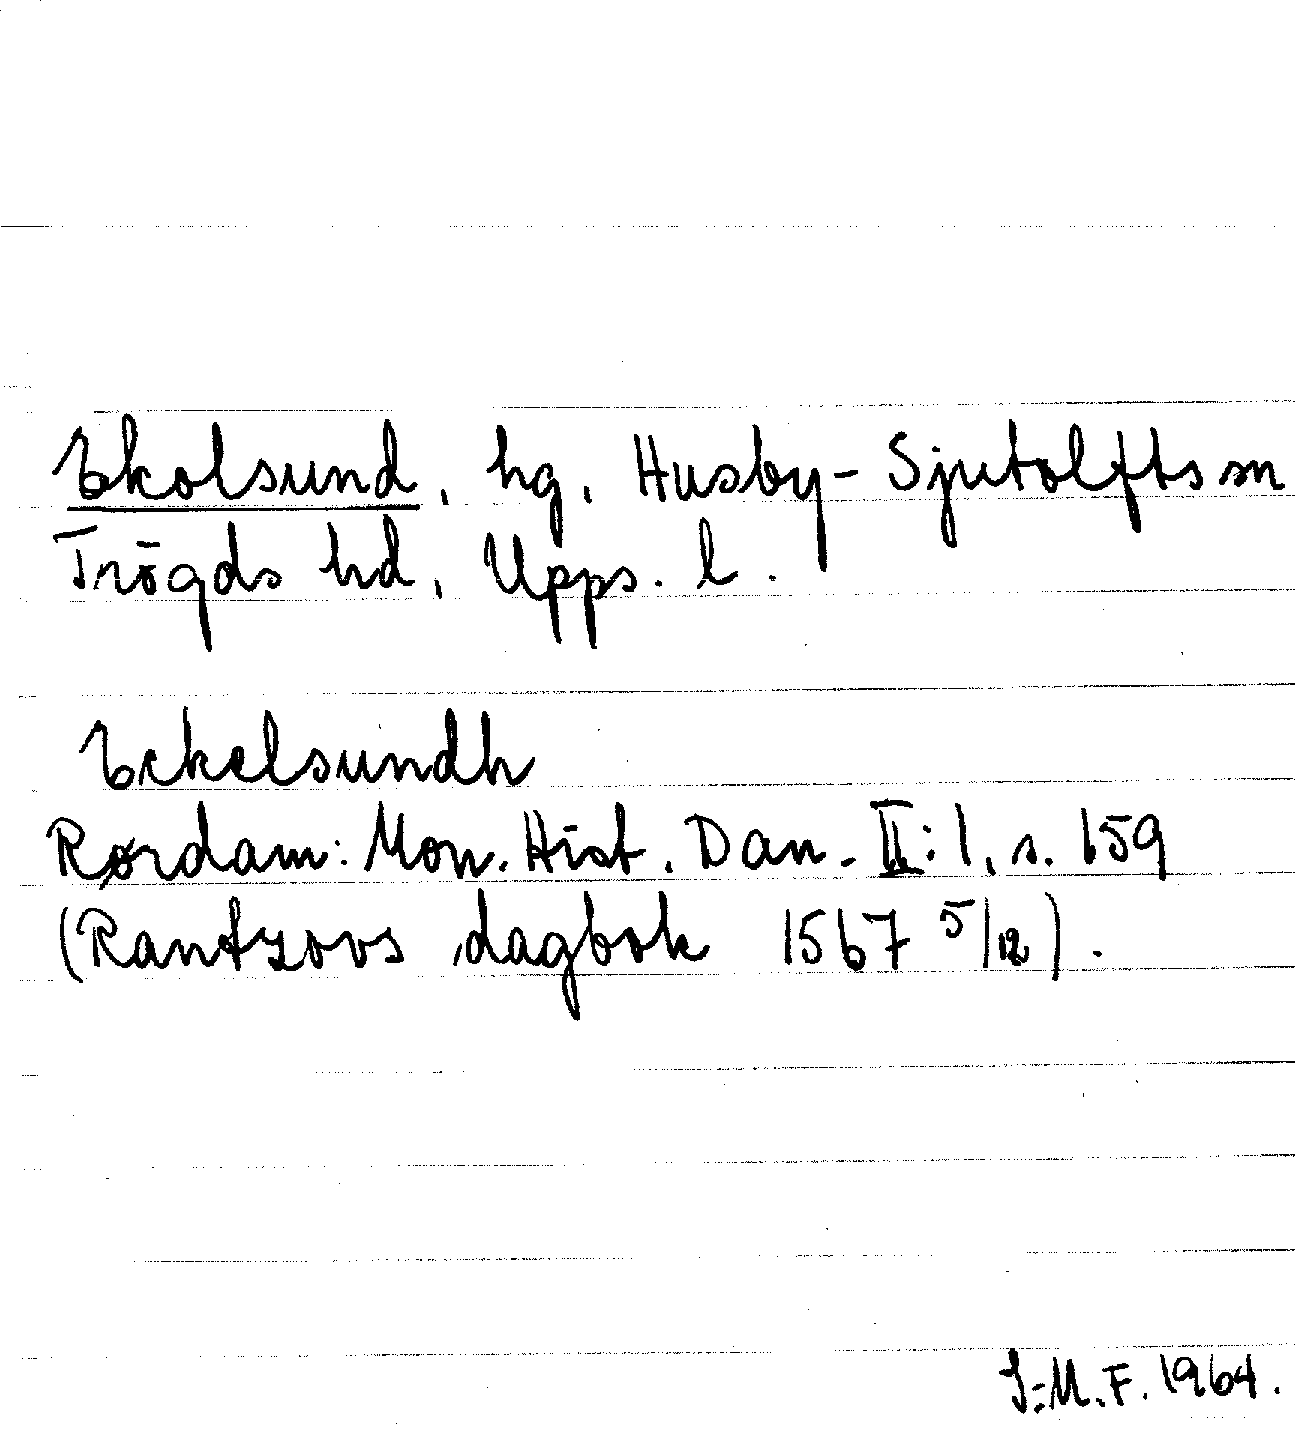 Ekolsund, hg, Husby-Sjutolfts sn
Trögds hd, Upps. l.
Eckelsundh
Rørdam: Mon. Hist. Dan. II:1, s. 159
(Rantzovs dagbok 1567 5/12).
I-M.F. 1964.